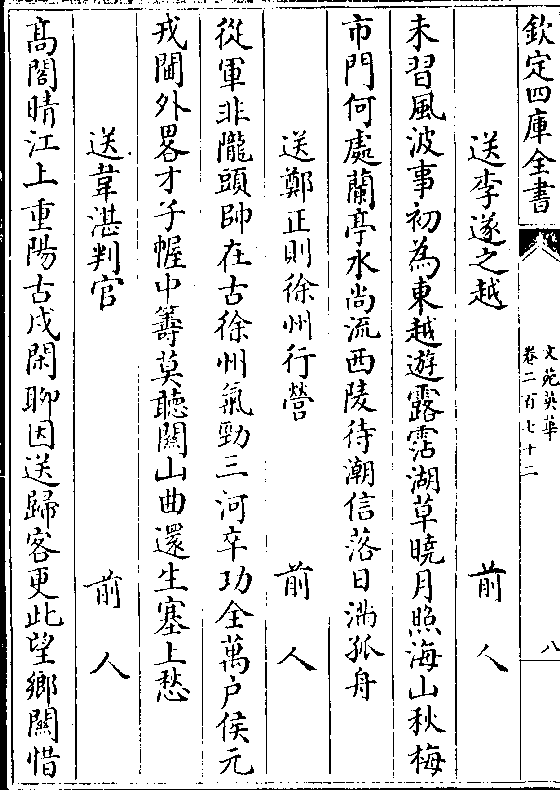 欽定四庫全書
文苑英華
卷二百七十二
八
送李遂之越　前人
未習風波事初為東越遊露霑湖草曉月照海山秋梅
市門何處蘭亭水尚流西陵待潮信落日滿孤舟
送鄭正則徐州行營　前人
從軍非隴頭帥在古徐州氣勁三河卒功全萬戸侯元
戎閫外畧才子幄中籌莫聽關山曲還生塞上愁
送韋湛判官　前人
髙閣晴江上重陽古戍閑聊因送歸客更此望鄉關惜